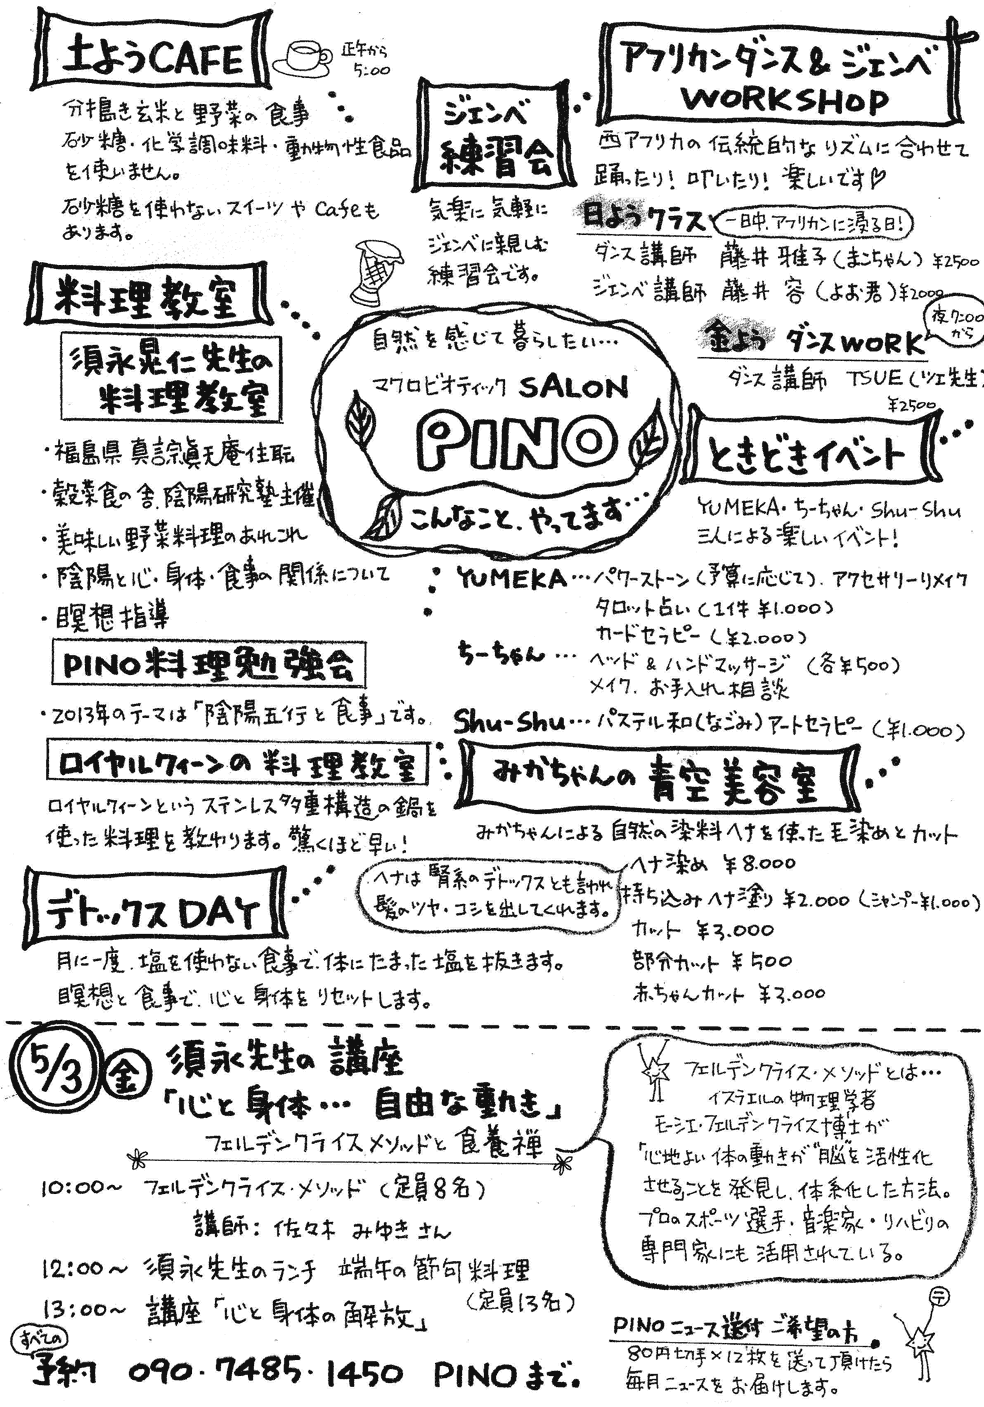 土ようCAFE
正午から
5:00
分搗き玄米と野菜の食事
砂糖・化学調味料・動物性食品
を使いません。
砂糖を使わないスイーツやCafeも
あります。
ジェンベ
練習会
気楽に気軽に
ジェンベに親しむ
練習会です。
アフリカンダンス&ジェンベ
WORKSHOP
西アフリカの伝統的なリズムに合わせて
踊ったり!叩いたり!楽しいです♡
日ようクラス
一日中、アフリカンに浸る日!
ダンス講師 藤井雅子(まこちゃん)¥2500
ジェンベ講師 藤井容(よお君)¥2000
金よう ダンスWORK
夜7:00
から
ダンス講師 TSUE(ツェ先生)
¥2500
料理教室
須永晃仁先生の
料理教室
・福島県真言宗眞天庵住職
・穀菜食の舎、陰陽研究塾主催
・美味しい野菜料理のあれこれ
・陰陽と心・身体・食事の関係について
・瞑想指導
PINO料理勉強会
・2013年のテーマは「陰陽五行と食事」です。
ロイヤルクィーンの料理教室
ロイヤルクィーンというステンレス多重構造の鍋を
使った料理を教わります。驚くほど早い!
自然を感じて暮らしたい…
マクロビオティック SALON
PINO
こんなこと、やってます…
ときどきイベント
YUMEKA・ちーちゃん・Shu-Shu
三人による楽しいイベント!
YUMEKA…パワーストーン(予算に応じて)、アクセサリーリメイク
タロット占い(1件¥1.000)
カードセラピー(¥2.000)
ちーちゃん…ヘッド&ハンドマッサージ(各¥500)
メイク、お手入れ相談
Shu-Shu…パステル和(なごみ)アートセラピー(¥1.000)
みかちゃんの青空美容室
みかちゃんによる自然の染料ヘナを使った毛染めとカット
ヘナ染め ¥8.000
持ち込みヘナ塗り ¥2.000(シャンプー¥1.000)
カット ¥3.000
部分カット ¥500
赤ちゃんカット ¥3.000
ヘナは腎系のデトックスとも言われ
髪のツヤ・コシを出してくれます。
デトックスDAY
月に一度、塩を使わない食事で、体にたまった塩を抜きます。
瞑想と食事で、心と身体をリセットします。
5/3 金 須永先生の講座
「心と身体… 自由な動き」
フェルデンクライスメソッドと食養禅
10:00～ フェルデンクライス・メソッド(定員8名)
講師:佐々木みゆきさん
12:00～ 須永先生のランチ 端午の節句料理
(定員13名)
13:00～ 講座「心と身体の解放」
すべての
予約 090・7485・1450 PINOまで。
フェルデンクライス・メソッドとは…
イスラエルの物理学者
モーシェ・フェルデンクライス博士が
「心地よい体の動きが“脳”を活性化
させる」ことを発見し、体系化した方法。
プロのスポーツ選手・音楽家・リハビリの
専門家にも活用されている。
〒
PINOニュース送付ご希望の方
80円切手×12枚を送って頂けたら
毎月ニュースをお届けします。